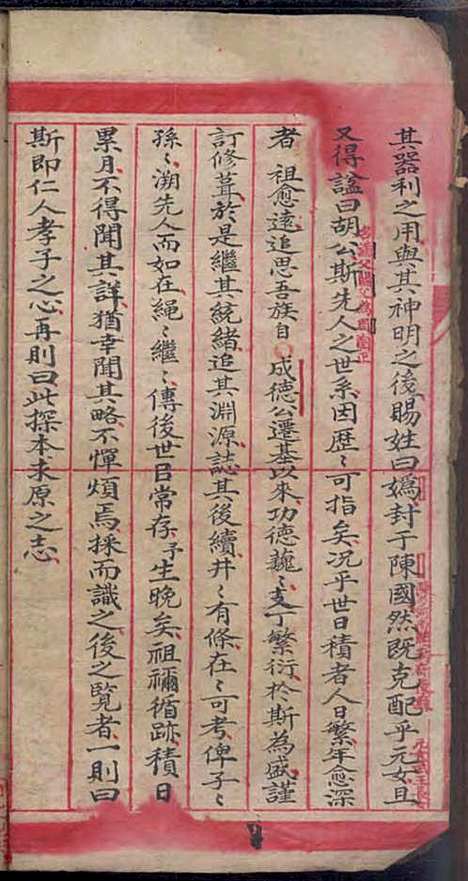 其器利之用與其神明之後賜姓曰媯封于陳國然既克配乎元女且
又得諡曰胡公斯先人之世系因歴〻可指矣况乎世日積者人日繁年愈深
者 祖愈遠追思吾族自 成德公遷基以來功德巍〻支丁繁衍於斯為盛謹
訂修葺於是繼其統緒追其淵源誌其後續井〻有條在〻可考俾子〻
孫〻溯先人而如在繩〻繼〻傳後世㠯常存予生晚矣祖禰循跡積日
累月不得聞其詳猶幸聞其略不憚煩焉採而識之後之覧者一則曰
斯即仁人孝子之心再則曰此探本求原之志